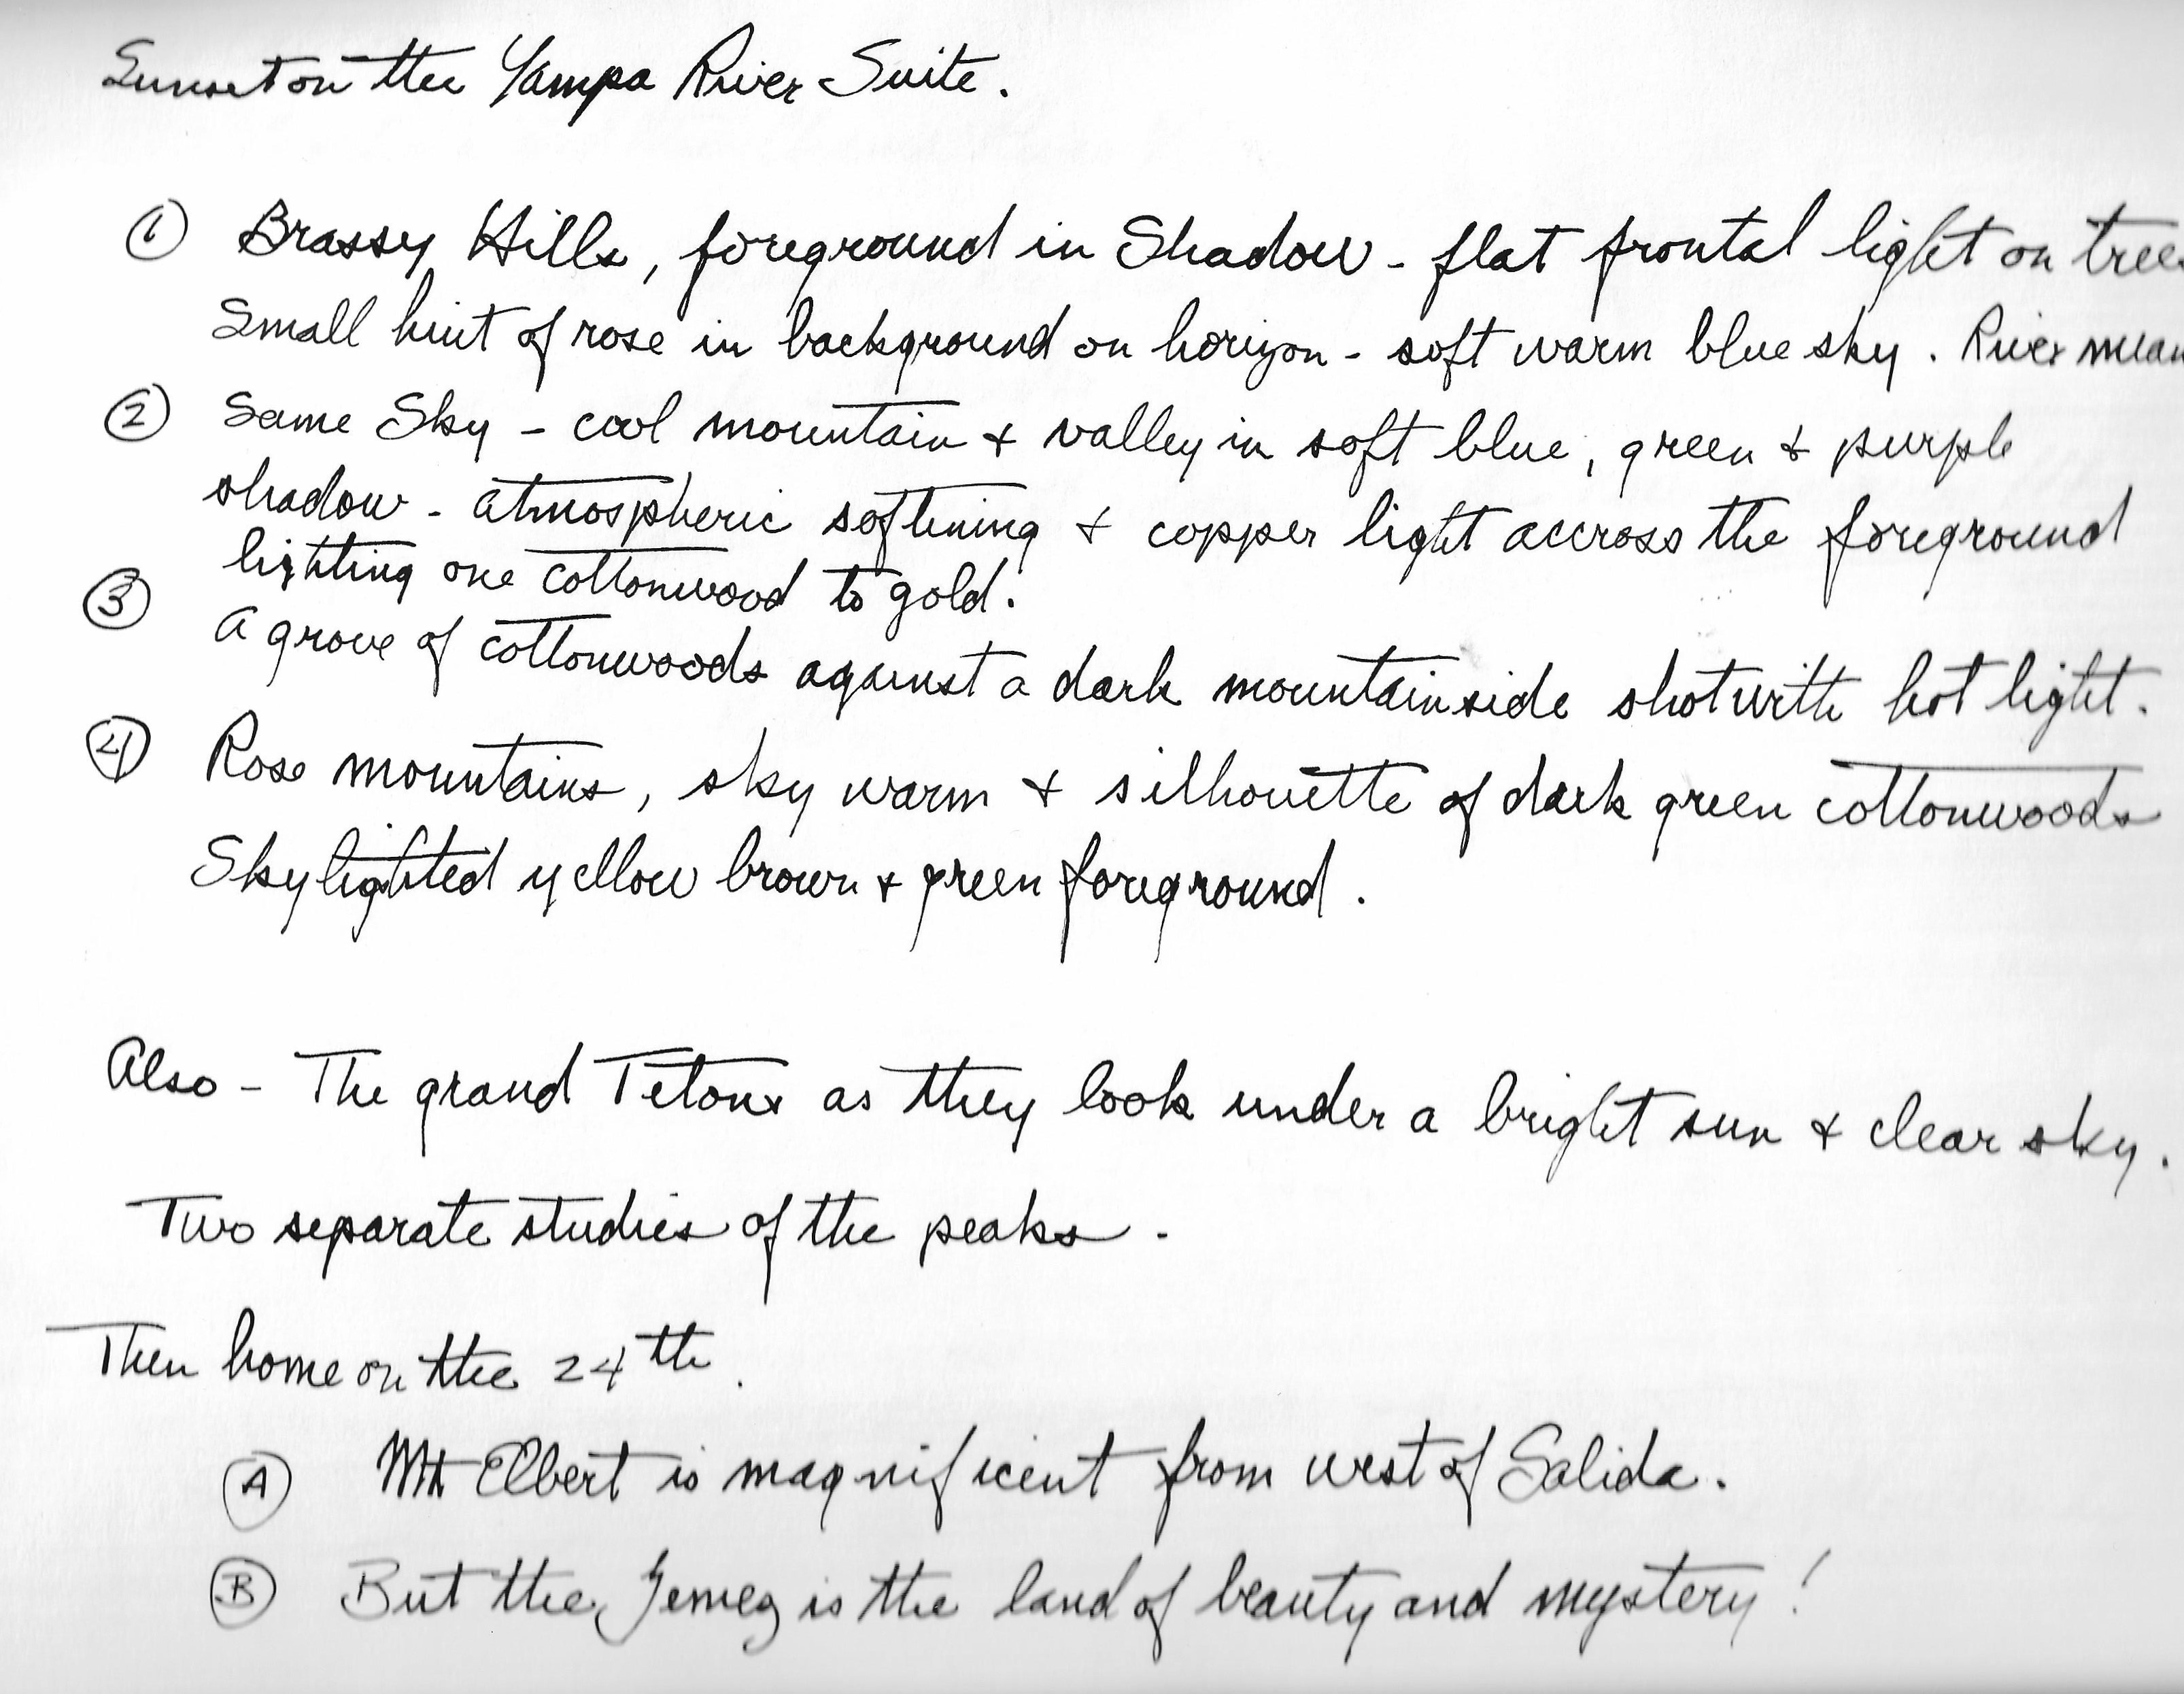 Sunset on the Yampa River Suite.
① Brassy Hills, foreground in Shadow - flat frontal light on trees
Small hint of rose in background on horizon - soft warm blue sky. River
② Same Sky - cool mountain + valley in soft blue, green + purple
shadow - atmospheric softening + copper light accross the foreground
lighting one cottonwood to gold.
③ A grove of cottonwoods against a dark mountainside shot with hot light.
④ Rose mountains, sky warm + silhouette of dark green cottonwoods
Skylighted yellow brown + green foreground.
Also - The grand Tetons as they look under a bright sun + clear sky.
Two separate studies of the peaks.
Then home on the 24th.
Ⓐ Mt Elbert is magnificent from west of Salida.
Ⓑ But the Jemez is the land of beauty and mystery!